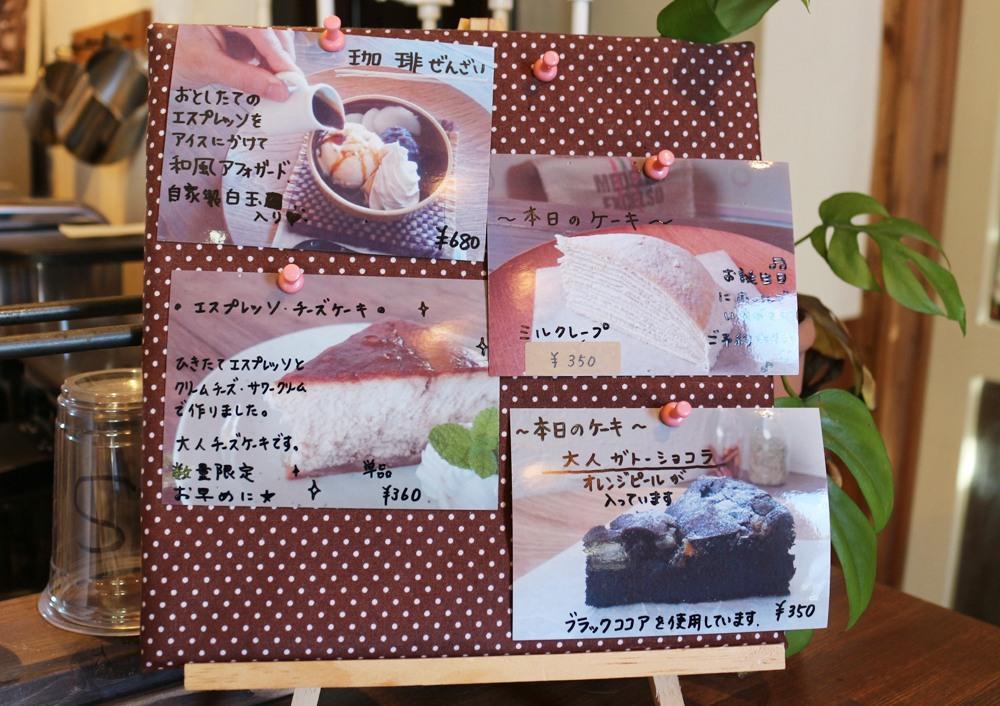 珈琲ぜんざい
おとしたての
エスプレッソを
アイスにかけて
和風アフォガード
自家製白玉
入り♥
¥680
MED
EXCELSO
〜本日のケーキ〜
お誕生日
ミルクレープ
¥350
ご予約
・エスプレッソ・チーズケーキ。
ひきたてエスプレッソと
クリームチーズ・サワークリーム
で作りました。
大人チーズケーキです。
数量限定
お早めに★
単品
¥360
〜本日のケーキ〜
大人ガトーショコラ
オレンジピールが
入っています
ブラックココアを使用しています.
¥350
S